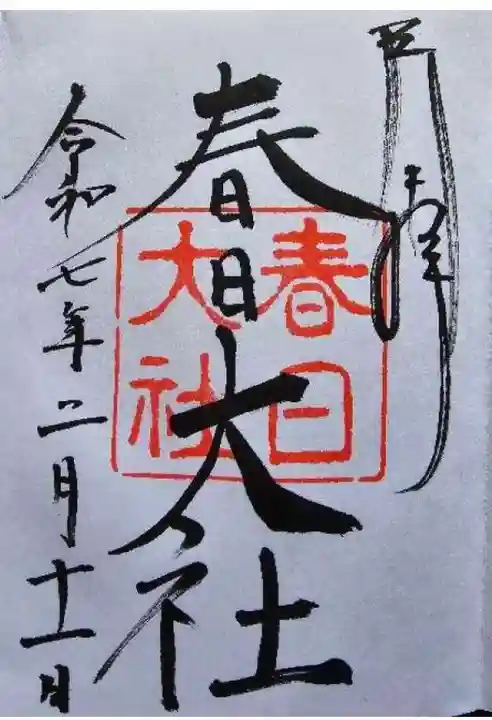 奉拝
春日大社
春日大社
令和七年二月十一日